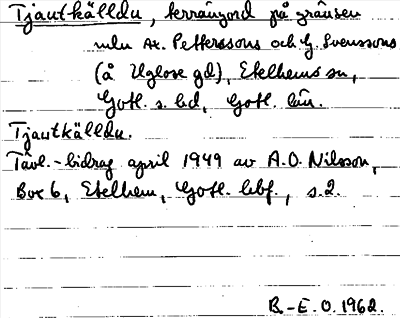 Tjautkälldu, terrängord på gränsen
mln Ax. Petterssons och G. Svenssons
(å Uglose gd), Etelhems sn,
Gotl. s. hd, Gotl. län.
Tjautkälldu.
Tävl.-bidrag april 1949 av A.O. Nilsson,
Box 6, Etelhem, Gotl. lbf., s.2.
B.-E. O. 1962.